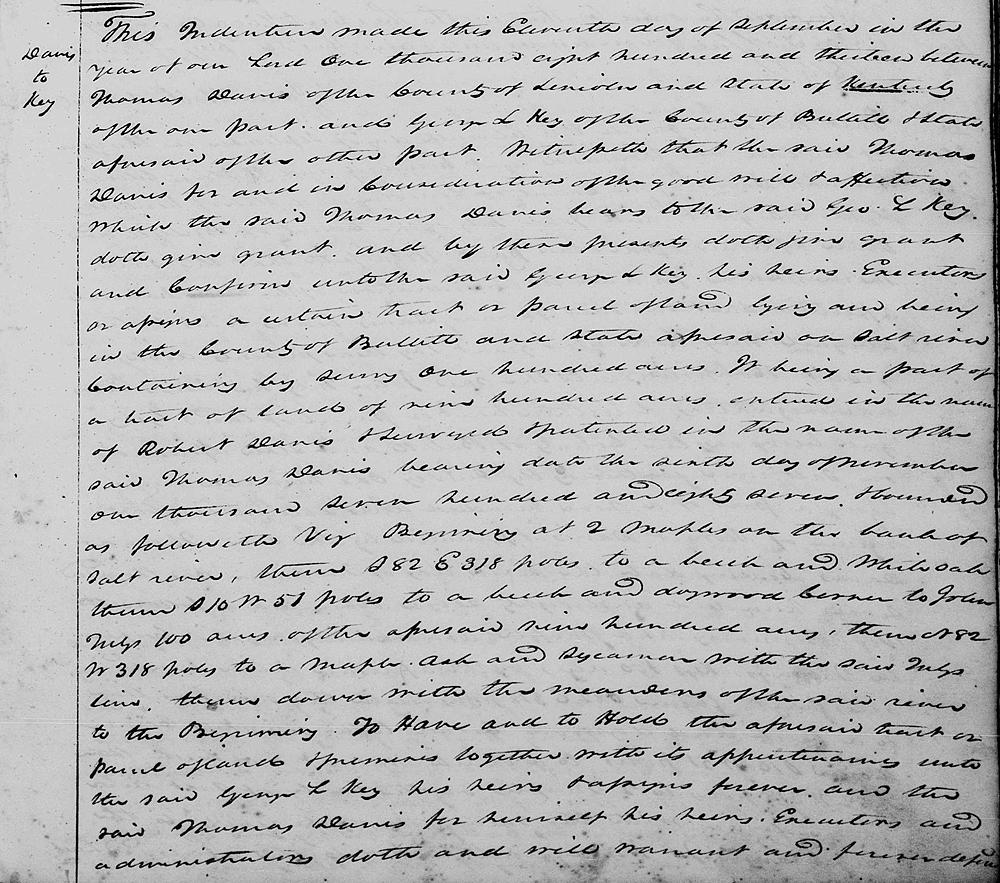 Davis
to
Key
This Indenture made this Eleventh day of September in the
year of our Lord One thousand eight hundred and thirteen between
Thomas Davis of the County of Lincoln and State of Kentucky
of the one part. and George L Key of the County of Bullitt & State
aforesaid of the other part. Witnesseth that the said Thomas
Davis for and in Consideration of the good will & affection
which the said Thomas Davis bears to the said Geo. L Key.
doth give grant. and by these presents doth give grant
and Confirm unto the said George L Key. his heirs. Executors
or assigns a certain tract or parcel of land lying and being
in the County of Bullitt and State aforesaid on Salt river
Containing by survey One hundred acres. It being a part of
a tract of land of nine hundred acres. entered in the name
of Robert Davis & Surveyed & patented in the name of the
said Thomas Davis bearing date the ninth day of november
One thousand seven hundred and eighty seven & bounded
as followeth Viz Beginning at 2 maples on the bank of
Salt river, thence S 82 E 318 poles. to a beech and White oak
thence S 10 W 51 poles to a beech and dogwood Corner to John
100 acres. of the aforesaid nine hundred acres, thence N 82
W 318 poles to a maple. ash and Sycamore with the said
line. thence down with the meanders of the said river
to the Beginning. To Have and to Hold the aforesaid tract or
parcel of land & premises together with its appurtenances unto
the said George L Key his heirs & assigns forever. and the
said Thomas Davis for himself his heirs. Executors and
administrators doth and will warrant and forever defend